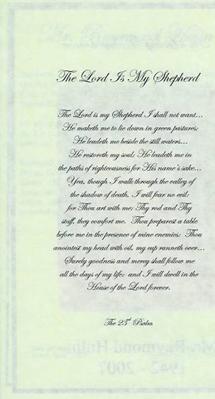 The Lord Is My Shepherd
The Lord is my Shepherd I shall not want...
He maketh me to lie down in green pastures;
He leadeth me beside the still waters...
He restoreth my soul: He leadeth me in
the paths of righteousness for His name's sake...
Yea, though I walk through the valley of
the shadow of death, I will fear no evil:
for Thou art with me; Thy rod and Thy
staff, they comfort me. Thou preparest a table
before me in the presence of mine enemies: Thou
anointest my head with oil, my cup runneth over...
Surely goodness and mercy shall follow me
all the days of my life: and I will dwell in the
House of the Lord forever.
The 23rd Psalm